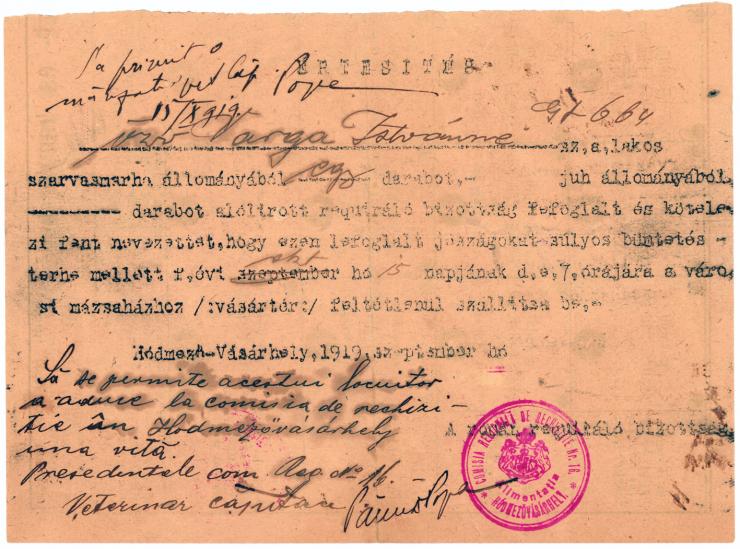 Sa primit
ÉRTESITÉS
vet Cap. Pope
15/X 919.
özv Varga Istvánné
sz,a,lakos
szarvasmarha állományából egy darabot,- juh állományából,
darabot alólirott requiráló bizottság lefoglalt és kötele-
zi fent nevezettet,hogy ezen lefoglalt jószágokat súlyos büntetés -
terhe mellett f,évi szeptember okt hó 15 napjának d,e,7,órájára a váro-
si mázsaházhoz /:vásártér:/ feltétlenül szállitsa be,-
Hódmező-Vásárhely,1919,szeptember hó
Să se permite acestui locuitor
a aduce la comisia de rechizi-
tie în Hodmezővásárhely
una vită.
A román requiráló bizottság
Presedintele com. Req No 16.
Veterinar capitan
COMISIA REGIONALĂ DE RECHIZIȚIE Nr. 16.
Alimentatia
HÓDMEZŐVÁSÁRHELY.